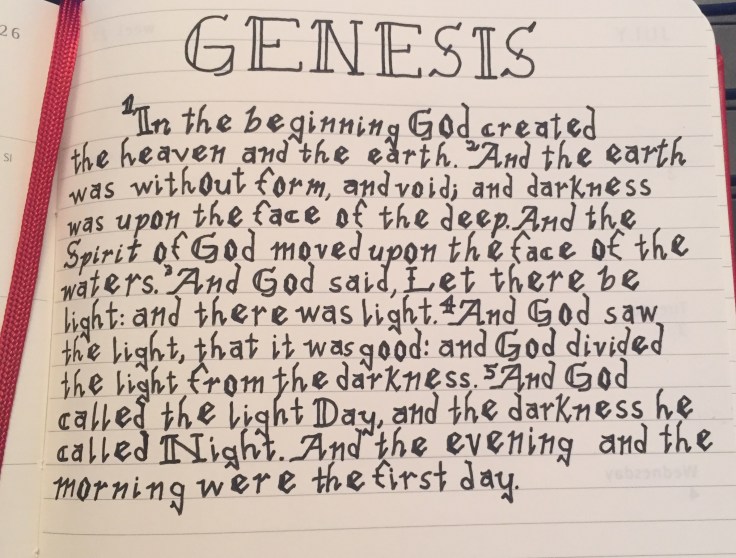 26
SI
GENESIS
1In the beginning God created
the heaven and the earth. 2And the earth
was without form, and void; and darkness
was upon the face of the deep. And the
Spirit of God moved upon the face of the
waters. 3And God said, Let there be
light: and there was light. 4And God saw
the light, that it was good: and God divided
the light from the darkness. 5And God
called the light Day, and the darkness he
called Night. And the evening and the
morning were the first day.
Wednesday
4